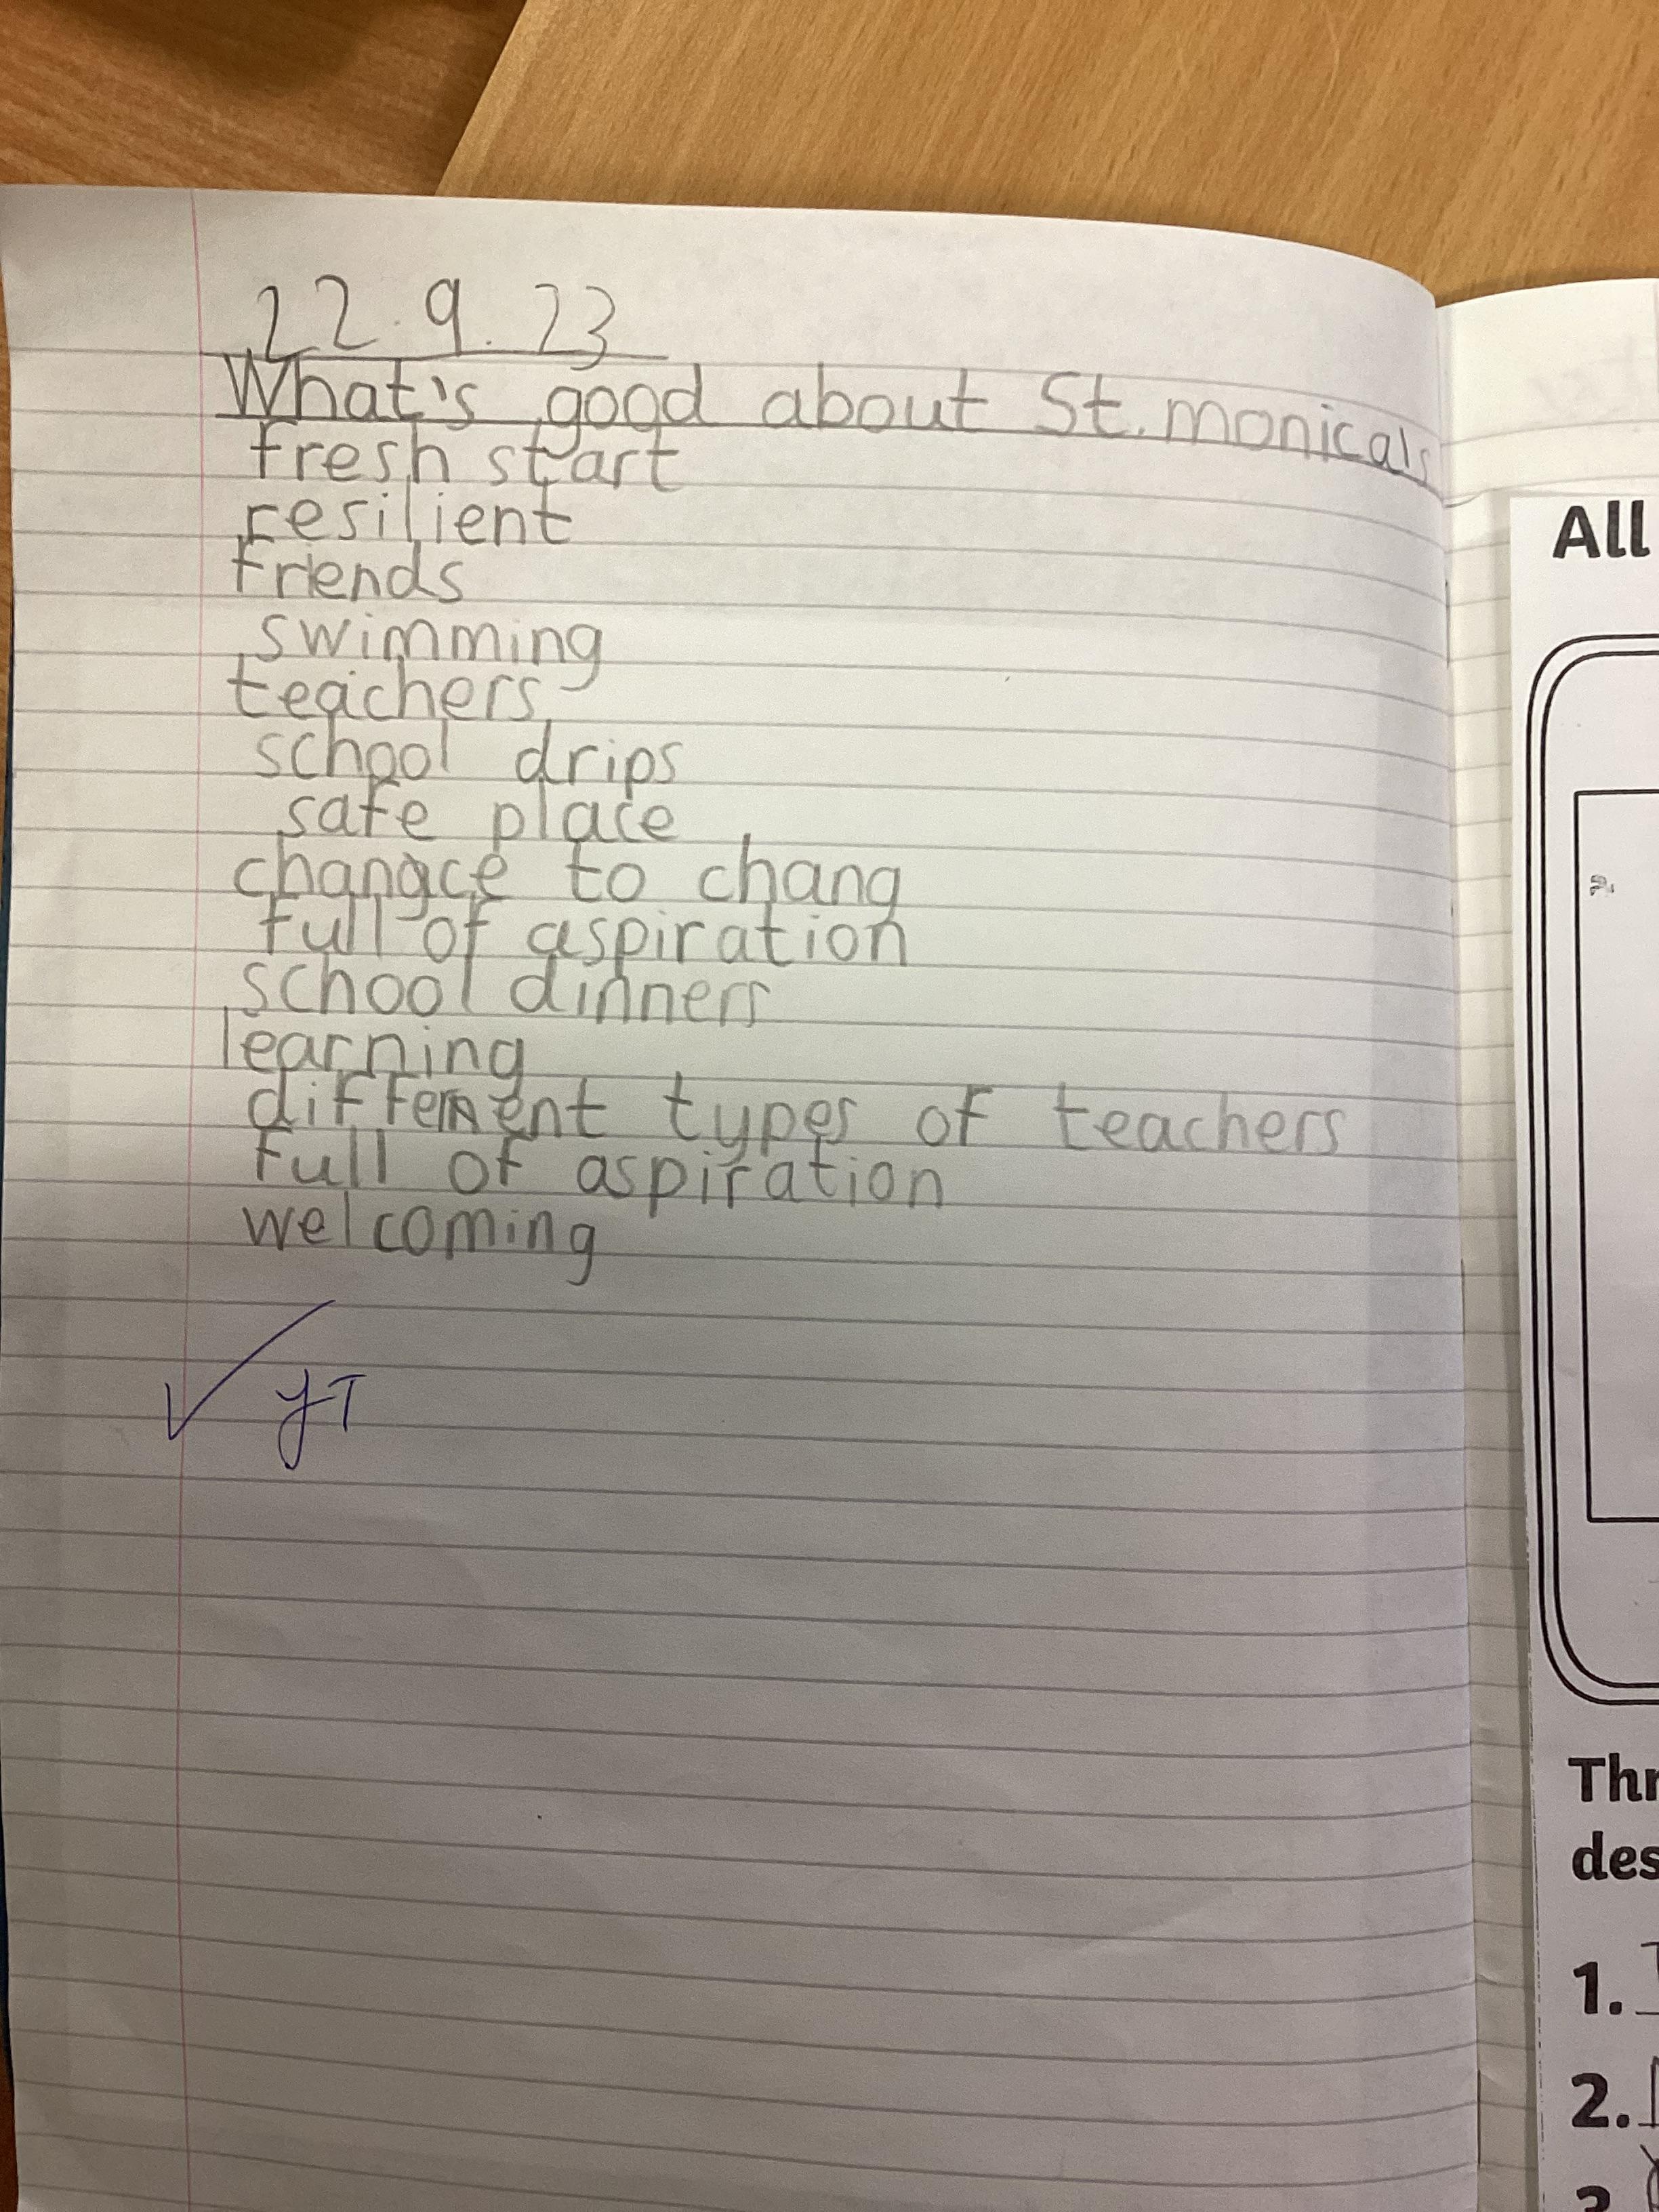 22.9.23
What's good about St. monica's
fresh start
resilient
friends
swimming
teachers
school drips
safe place
changce to chang
full of aspiration
school dinners
learning
different types of teachers
full of aspiration
welcoming
✓ YT
All
Thr
des
1.
2.
3.